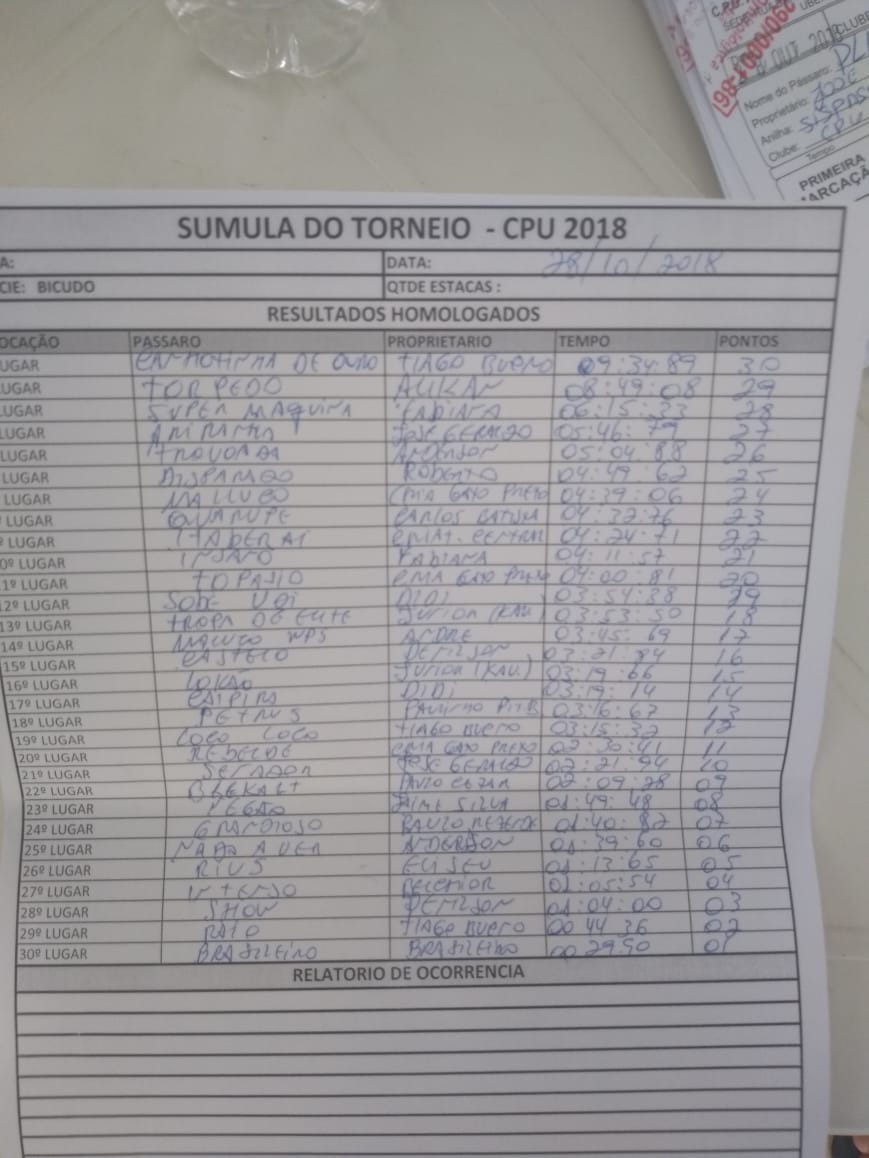 C.P.U.
SEDE
OUT 2018 CLUBE
98-1000/060
Nome do Pássaro:
Proprietário: JOSE
Anilha: SISPASS
Clube: CPU
Tempo
PRIMEIRA
MARCAÇÃ
SUMULA DO TORNEIO - CPU 2018
A: DATA: 28/10/2018
CIE: BICUDO QTDE ESTACAS :
RESULTADOS HOMOLOGADOS
OCAÇÃO PASSARO PROPRIETARIO TEMPO PONTOS
UGAR DE OURO TIAGO BUENO 09:34:89 30
UGAR TORPEDO 08:49:08 29
UGAR SUPER MAQUINA FABIANA 06:15:33 28
UGAR JOSE GERALDO 05:46:79 27
UGAR TROVOADA ANDERSON 05:04:88 26
LUGAR DISPARADO ROBERTO 04:49:62 25
LUGAR MALUCO GAIO PRETO 04:39:06 24
LUGAR GUARUPE CARLOS 04:32:76 23
LUGAR ITABERAI CENTRAL 04:24:71 22
0º LUGAR INSANO FABIANA 04:11:57 21
1º LUGAR TOPAZIO GAIO PRETO 04:00:81 20
12º LUGAR DIDI 03:54:38 19
13º LUGAR TROPA DE ELITE JUNIOR (KAU) 03:53:50 18
14º LUGAR MALUCO WPS ANDRE 03:45:69 17
15º LUGAR CASTELO DENILSON 03:21:84 16
16º LUGAR LOKÃO JUNIOR (KAU) 03:19:66 15
17º LUGAR CAIPIRA DIDI 03:19:14 14
18º LUGAR PETRUS 03:16:67 13
19º LUGAR LOCO LOCO TIAGO BUENO 03:15:32 12
20º LUGAR REBELDE GAIO PRETO 02:30:41 11
21º LUGAR SENADOR JOSE GERALDO 02:21:94 10
22º LUGAR PAULO CEZAR 02:09:28 09
23º LUGAR SILVA 01:49:48 08
24º LUGAR GRANDIOSO PAULO REZENDE 01:40:82 07
25º LUGAR NADA A VER ANDERSON 01:39:60 06
26º LUGAR RIUS ELISEU 01:13:65 05
27º LUGAR INTENSO 01:05:54 04
28º LUGAR SHOW DENILSON 01:04:00 03
29º LUGAR RAIO TIAGO BUENO 00 44 36 02
30º LUGAR BRASILEIRO BRASILEIRO 00 29 50 01
RELATORIO DE OCORRENCIA